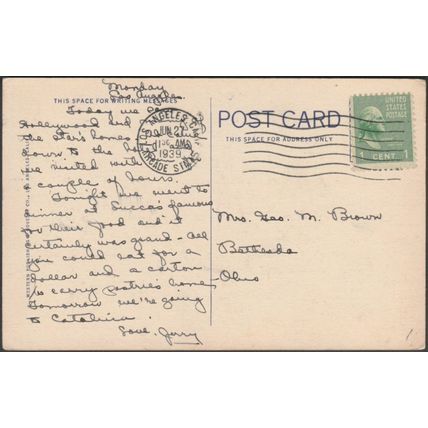 Monday
Los Angeles.
THIS SPACE FOR WRITING MESSAGES
Today we
Hollywood and all
the star's homes
down to the
we visited with
couple of hours.
Tonight we went
dinner to Succa's famous
for their food and it
certainly was grand - all
you could eat for a
dollar and a carton
to carry pastries home
Tomorrow we're going
to Catalina.
Love, Jerry
LOS ANGELES, CALIF.
JUN 27
AM
1939
ARCADE STA.
POST CARD
THIS SPACE FOR ADDRESS ONLY
UNITED
STATES
POSTAGE
1 CENT 1
Mrs. Geo. M. Brown
Bethesda
Ohio
1